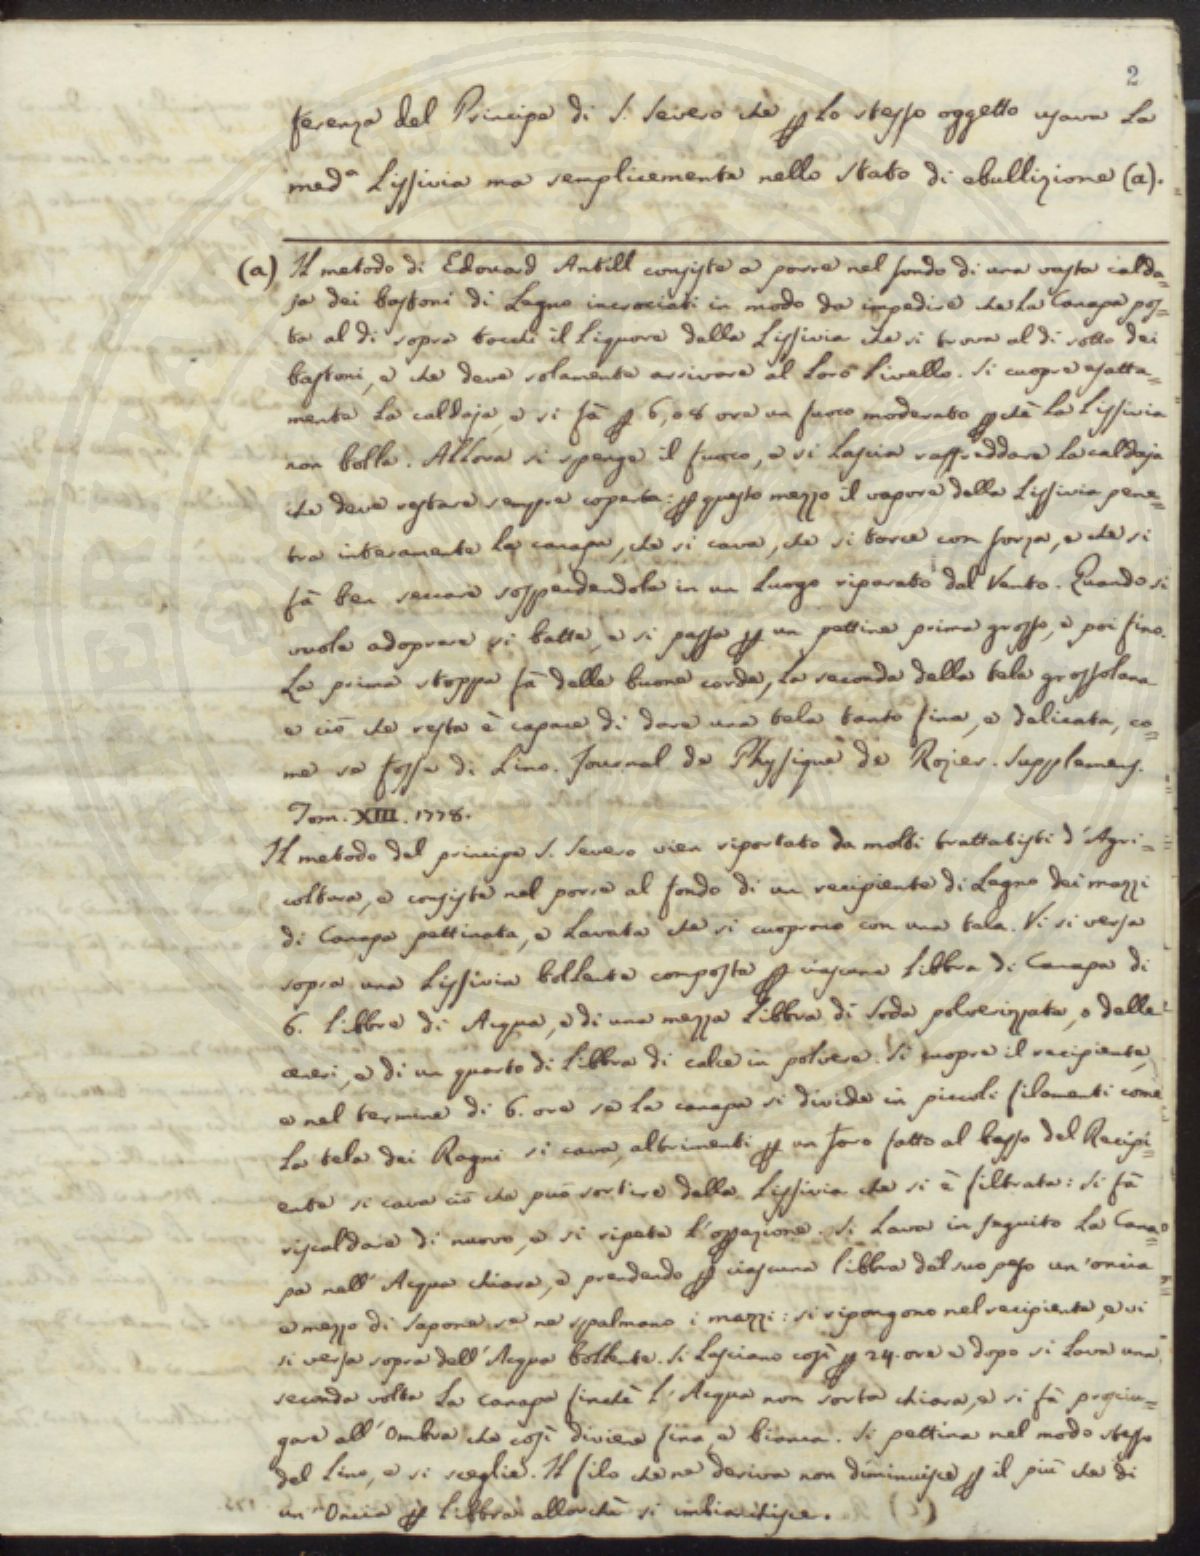 2
ferenza del Principe di S. Severo che p lo stesso oggetto usava La
med.a Lissivia ma semplicemente nello stato di ebullizione (a).
(a) Il metodo di Edouard Antill consiste a porre nel fondo di una vasta calda=
ja dei bastoni di Legno incrociati in modo da impedire che La Canapa pos=
ta al di sopra tocchi il Liquore della Lissivia che si trova al di sotto dei
bastoni, e che deve solamente arrivare al Loro Livello. Si cuopre esatta=
mente La caldaja, e si fà p 6, o 8 ore un fuoco moderato pchè La Lissivia
non bolla. Allora si spenge il fuoco, e si Lascia raffreddare La caldaja
che deve restare sempre coperta: p questo mezzo il vapore della Lissivia pene=
tra interamente La canapa, che si cava, che si torce con forza, e che si
fà ben seccare sospendendola in un Luogo riparato dal Vento. Quando si
vuole adoprare si batte, e si passa p un pettine prima grosso, e poi fino.
La prima stoppa fà delle buone corde, La seconda della tela grossolana
e ciò che resta è capace di dare una tela tanto fina, e delicata, co=
me se fosse di Lino. Journal de Physique de Rozier. Supplemens.
Tom. XIII. 1778.
Il metodo del principe S. Severo vien riportato da molti trattatisti d'Agri=
coltura, e consiste nel porre al fondo di un recipiente di Legno dei mazzi
di Canapa pettinata, e Lavata che si cuoprono con una tela. Vi si versa
sopra una Lissivia bollente composta p ciascuna Libbra di Canapa di
6. Libbre di Acqua, e di una mezza Libbra di Soda polverizzata, o delle
ceneri, e di un quarto di Libbra di calce in polvere. Si cuopre il recipiente,
e nel termine di 6. ore se La canapa si divide in piccoli filamenti come
La tela dei Ragni si cava, altrimenti p un foro fatto al basso del Recipi=
ente si cava ciò che può sortire della Lissivia che si è filtrata: si fà
riscaldare di nuovo, e si ripete L'opazione. Si Lava in seguito La Cana=
pa nell'Acqua chiara, e prendendo p ciascuna libbra del suo peso un'oncia
e mezzo di Sapone se ne spalmano i mazzi: si ripongono nel recipiente, e vi
si versa sopra dell'Acqua bollente. Si Lasciano così p 24. ore e dopo si Lava una
seconda volta La canapa finchè L'Acqua non sorta chiara, e si fà prosciu=
gare all'Ombra che così diviene fina, e bianca. Si pettina nel modo stesso
del Lino, e si sceglie. Il filo che ne deriva non diminuisce p il più che di
un'Oncia p Libbra allorchè si imbianchisce.